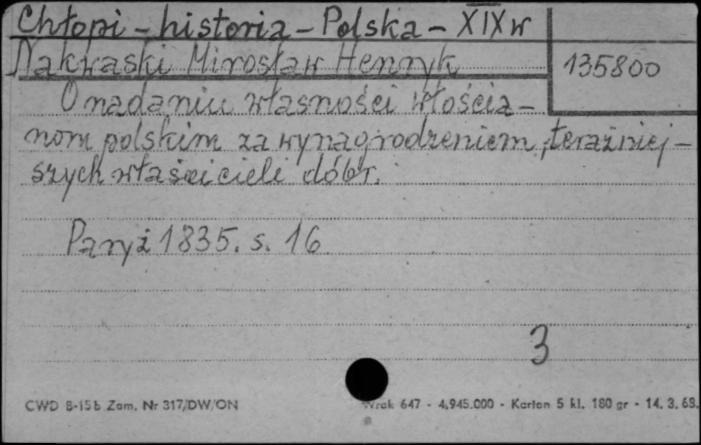 Chłopi - historia - Polska - XIX w
Nakwaski Mirosław Henryk
135800
O nadaniu własności włościa-
nom polskim za wynagrodzeniem, teraźniej-
szych właścicieli dóbr.
Paryż 1835. s. 16
3
CWD B-15b Zam. Nr 317/DW/ON
647 - 4.945.000 - Karton 5 kl. 180 gr - 14. 3. 68.